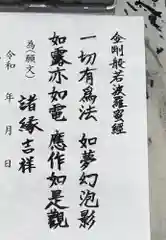 金剛般若波羅蜜経
一切有為法 如夢幻泡影
如露亦如電 應作如是觀
為(願文)
諸縁吉祥
令和 年 月 日